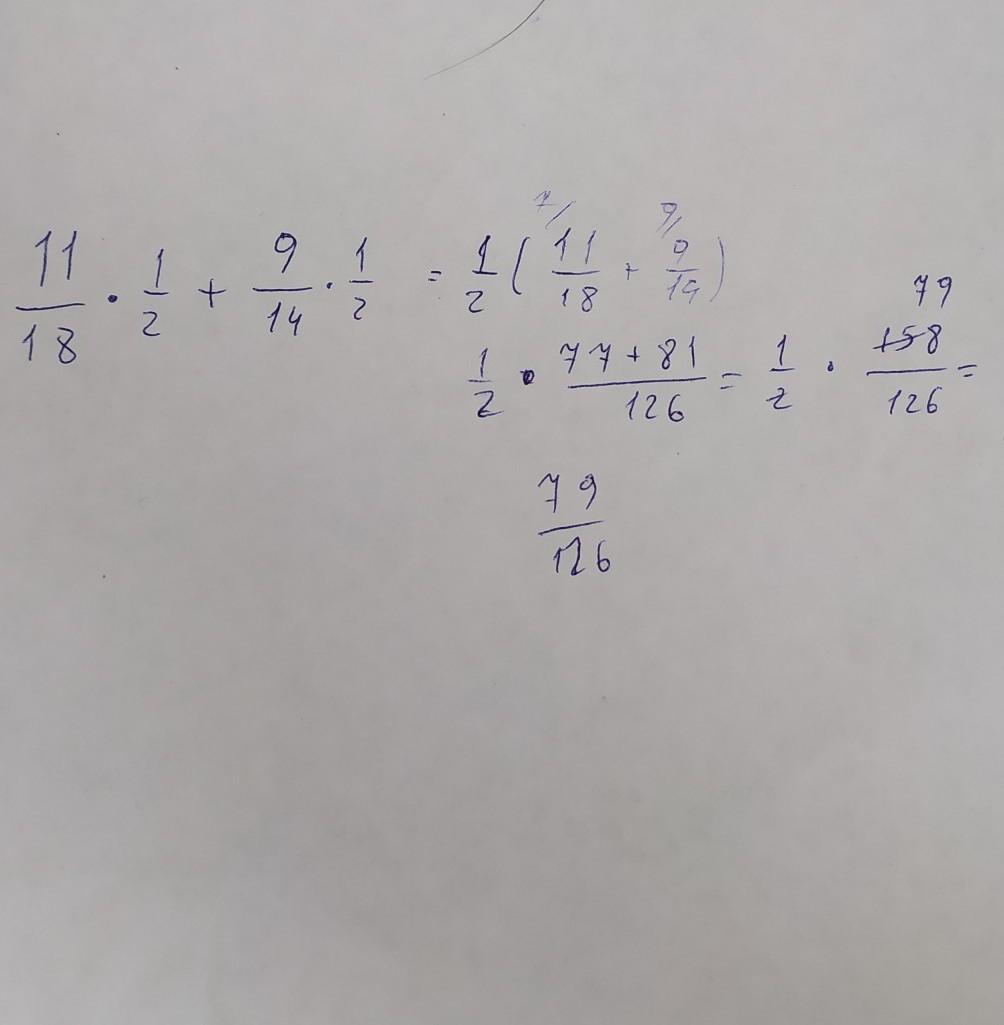 11/18 · 1/2 + 9/14 · 1/2 = 1/2 ( 7/ 11/18 + 9/ 9/14 )
1/2 · 77+81/126 = 1/2 · 79 158/126 =
79/126